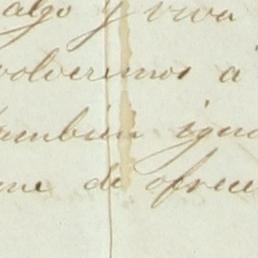 algo y viva
volveremos á
también igua
me de ofrece